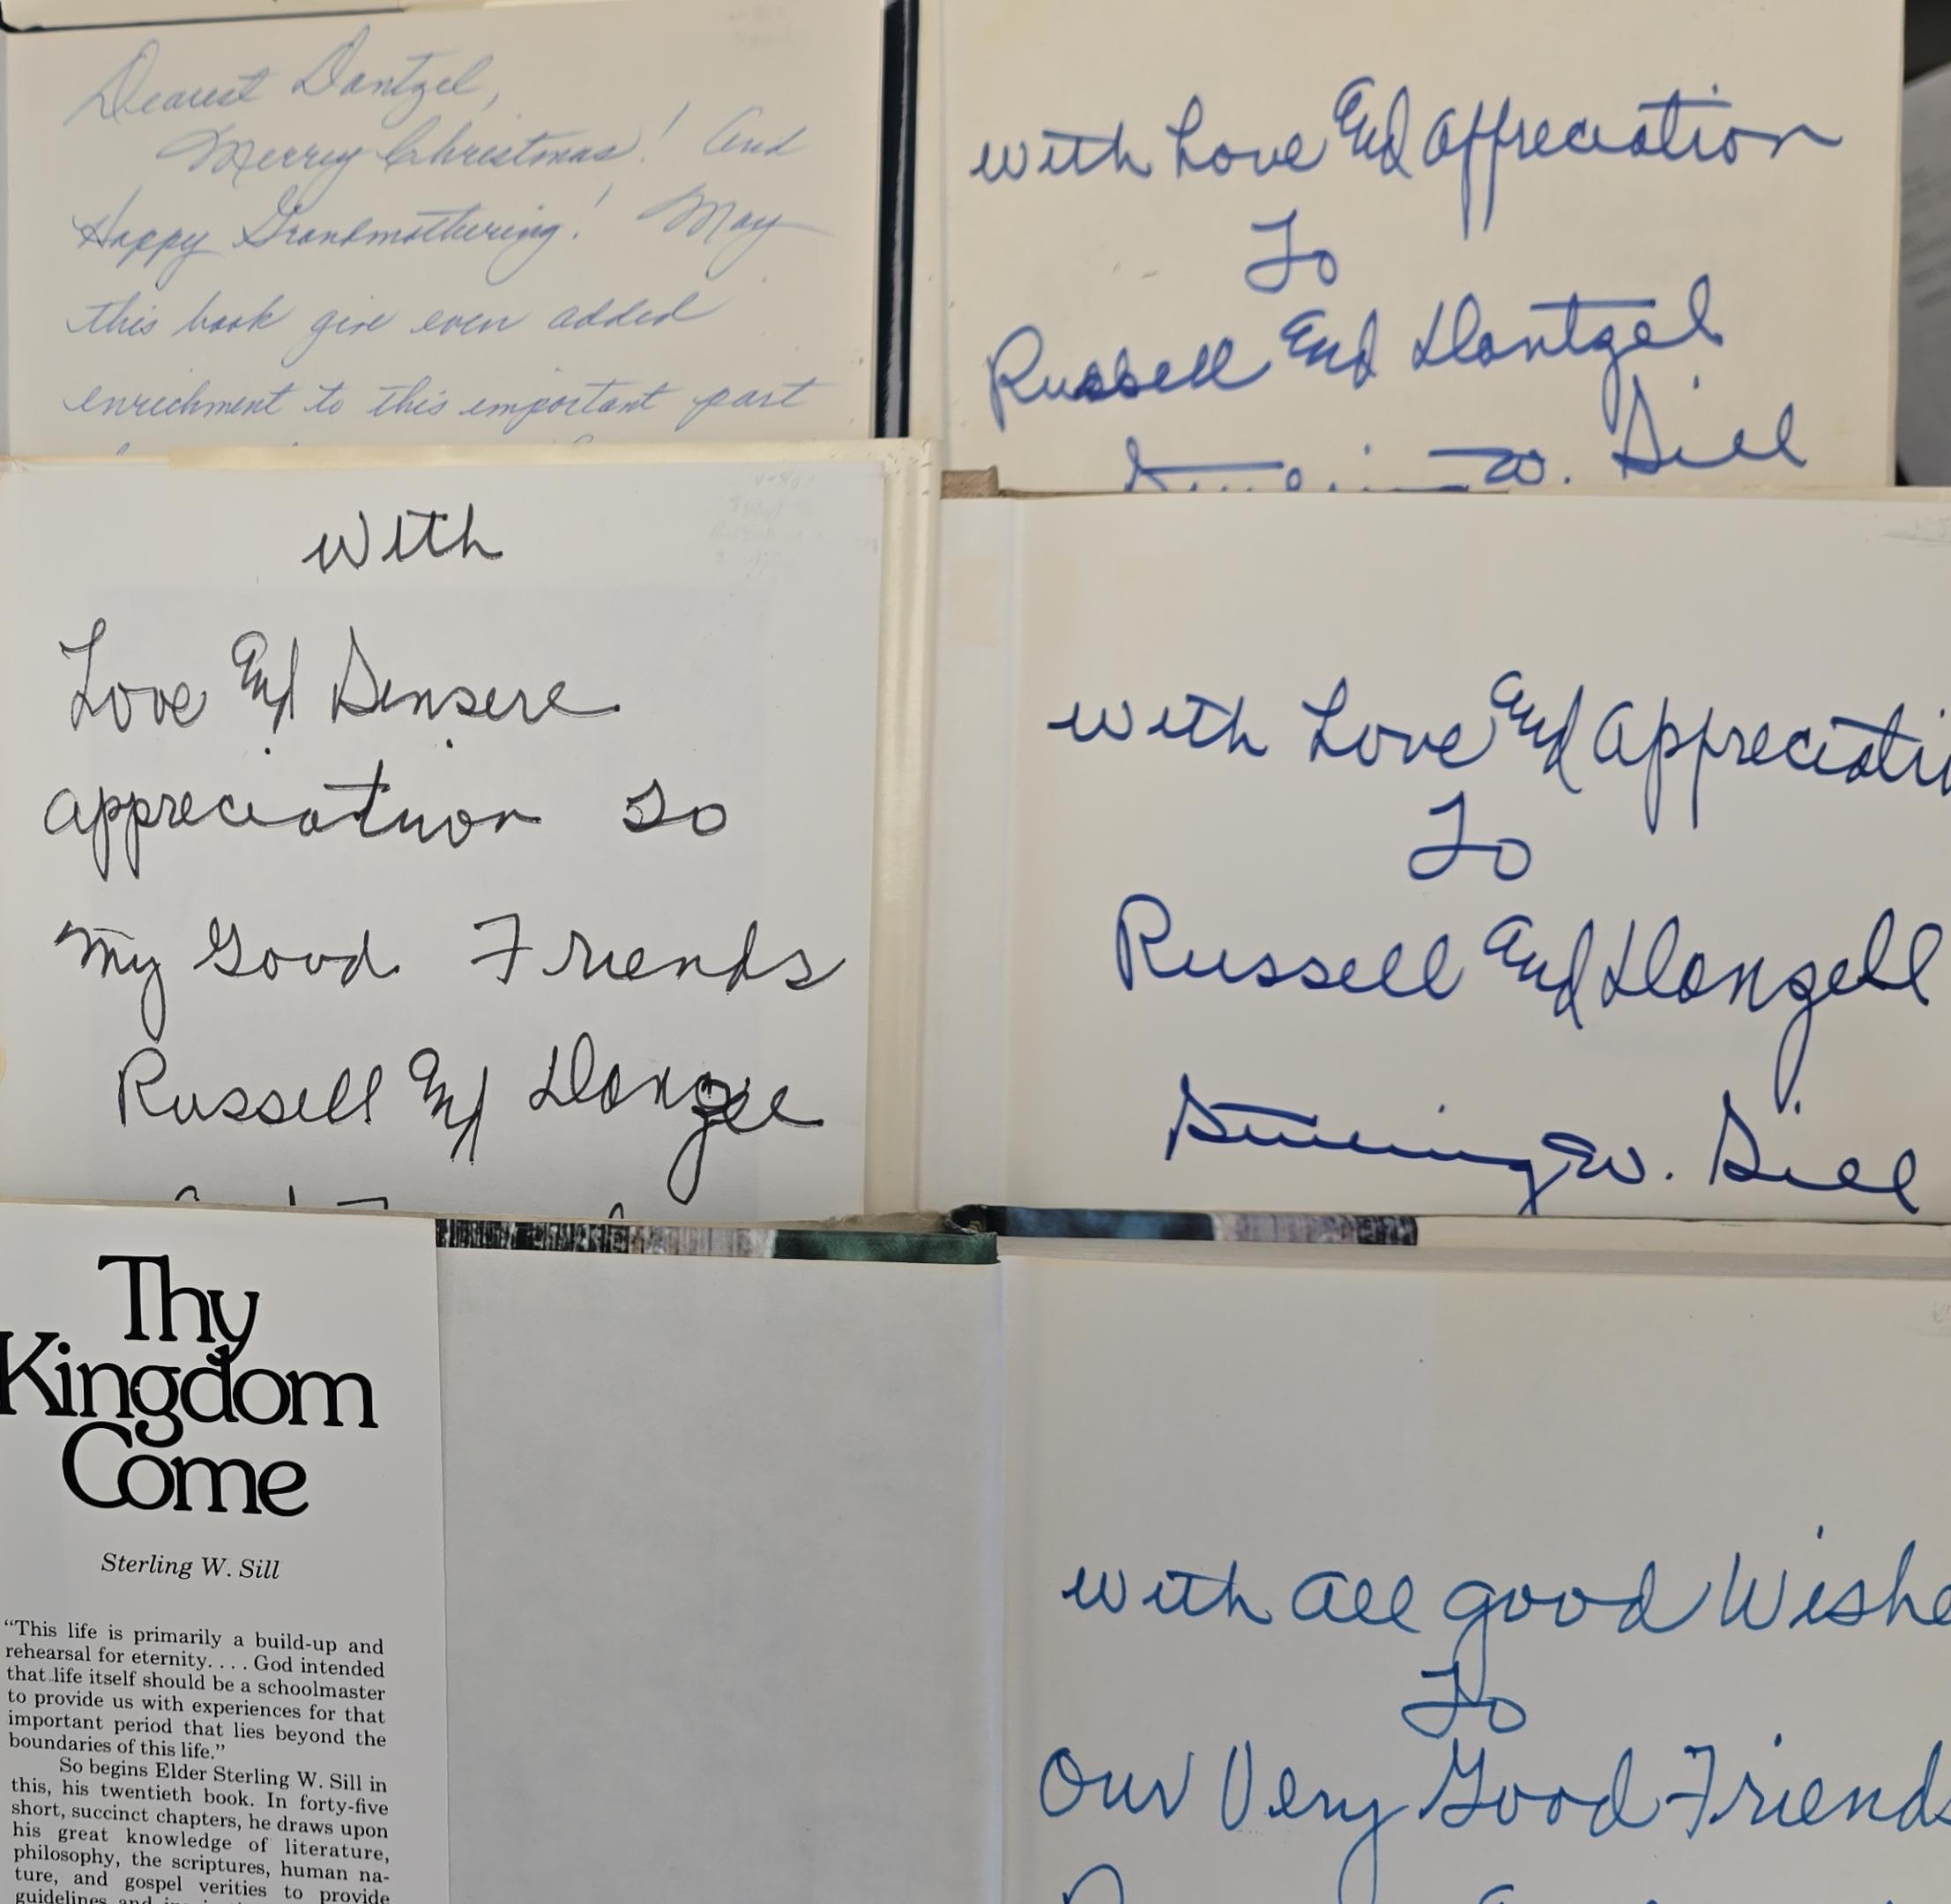 Dearest Dantzel,
Merry Christmas! And
Happy Grandmothering! May
this book give even added
enrichment to this important part
with Love And Appreciation
To
Russell And Dantzel
W. Sill
with
Love And Sensere
appreciatuon to
my Good Friends
Russell And Danzee
with Love And Appreciati
To
Russell And Danzell
Sterling W. Sill
Thy
Kingdom
Come
Sterling W. Sill
“This life is primarily a build-up and
rehearsal for eternity. . . . God intended
that life itself should be a schoolmaster
to provide us with experiences for that
important period that lies beyond the
boundaries of this life.”
So begins Elder Sterling W. Sill in
this, his twentieth book. In forty-five
short, succinct chapters, he draws upon
his great knowledge of literature,
philosophy, the scriptures, human na-
ture, and gospel verities to provide
guidelines and
with all good Wishe
To
Our Very Good Friends